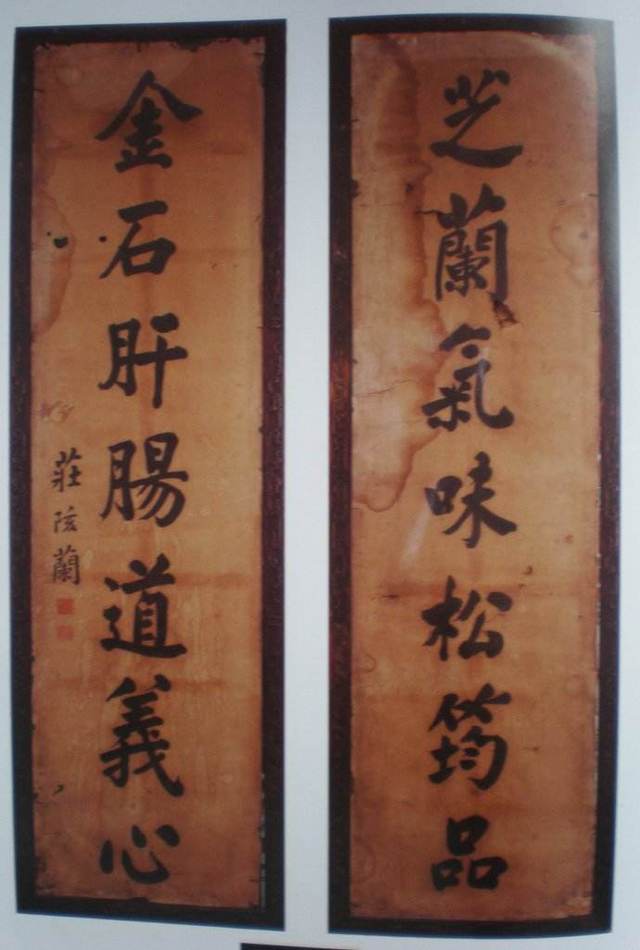 芝蘭氣味松筠品
金石肝腸道義心
莊陔蘭